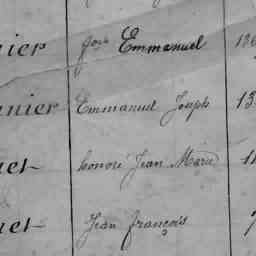 nier Jos^h Emmanuel 18
nier Emmanuel Joseph 13
uet honoré Jean Marie 11
uet Jean françois 7